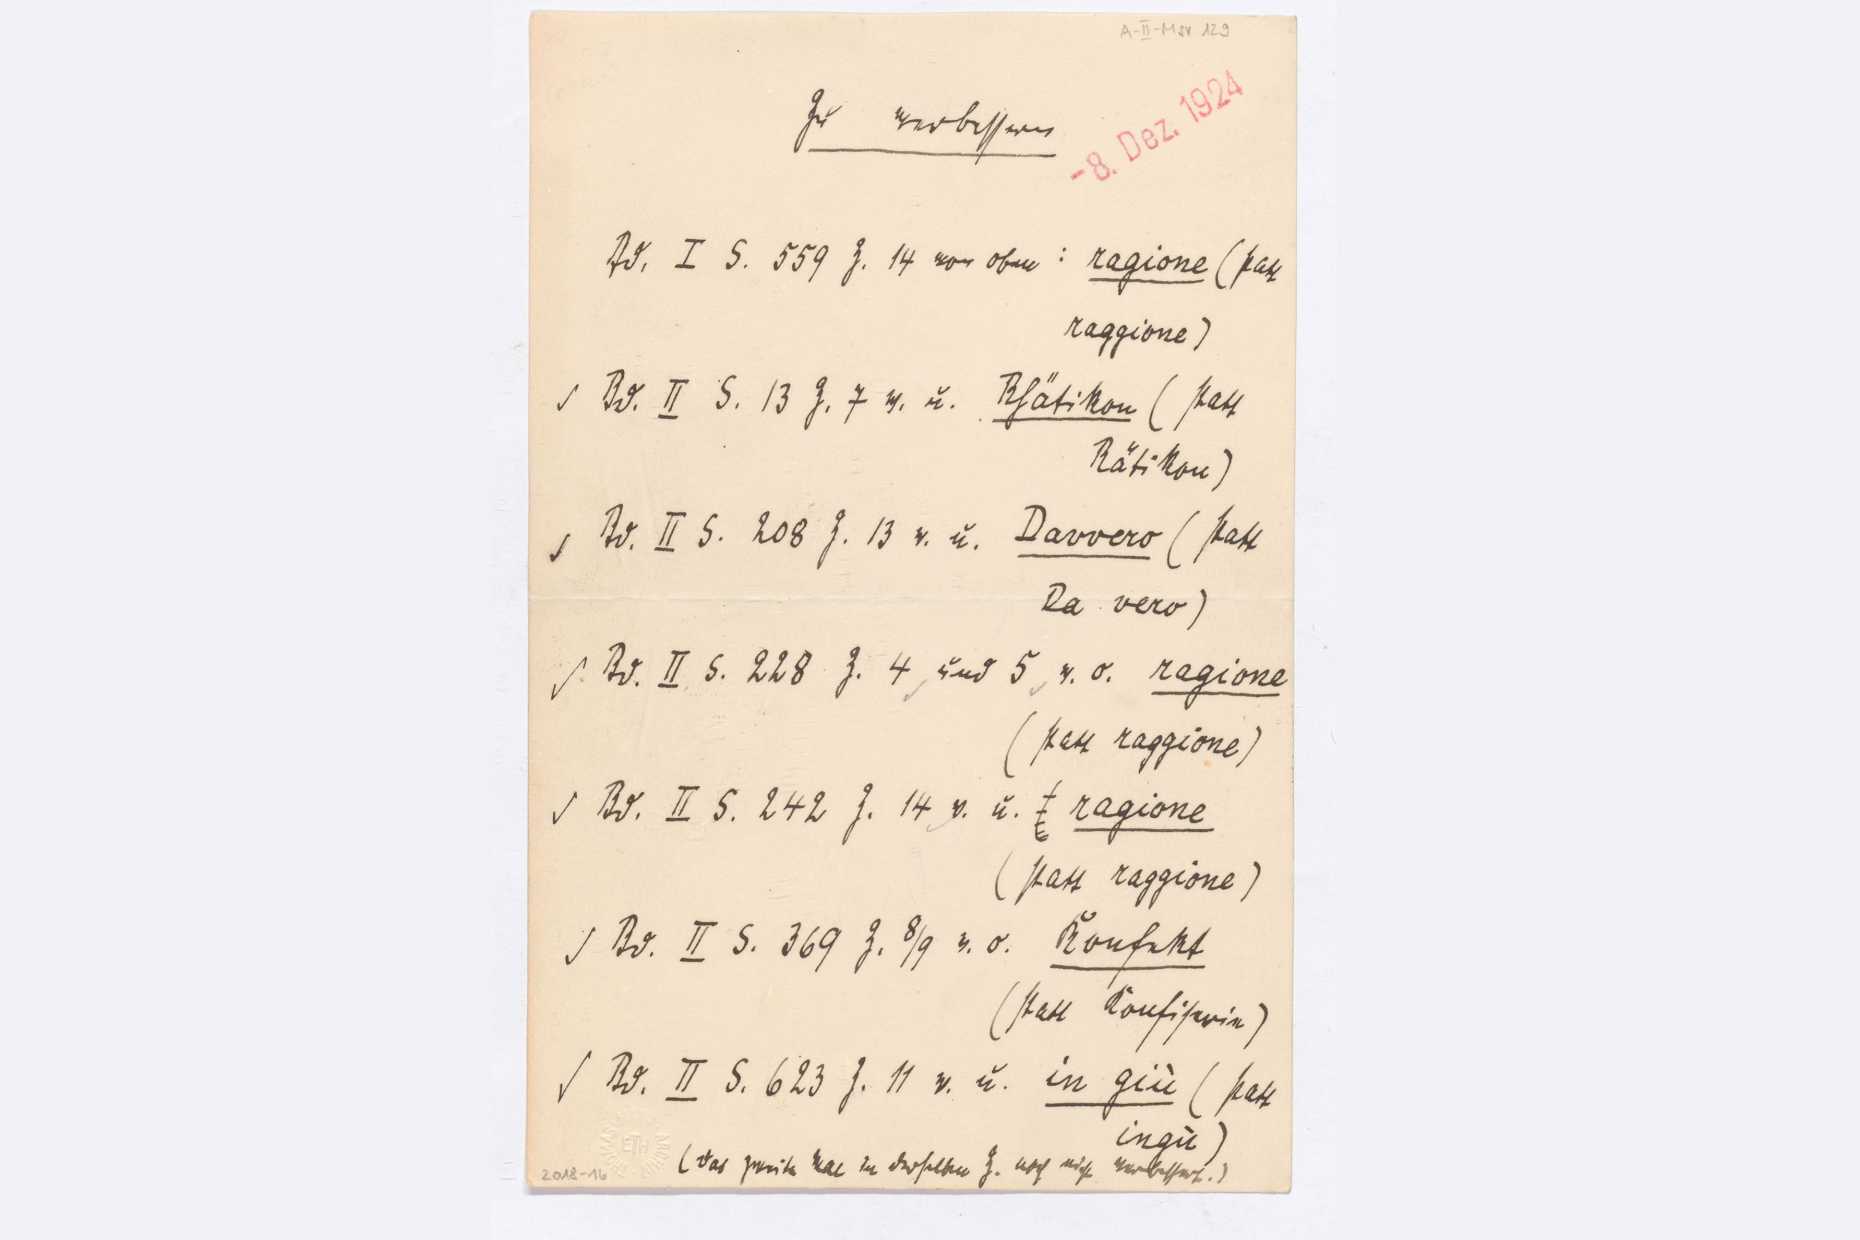 A-II-Msv 129
Zu verbessern
-8. Dez. 1924
Bd. I S. 559 Z. 14 von oben : ragione (statt
raggione)
Bd. II S. 13 Z. 7 v. u. Rhätikon (statt
Rätikon)
Bd. II S. 208 Z. 13 v. u. Davvero (statt
Da vero)
Bd. II S. 228 Z. 4 und 5 v. o. ragione
(statt raggione)
Bd. II S. 242 Z. 14 v. u. ragione
(statt raggione)
Bd. II S. 369 Z. 8/9 v. o. Konfekt
(statt Konfiserie)
Bd. II S. 623 Z. 11 v. u. in giù (statt
ingù)
(das zweite Mal in derselben Z. noch nicht verbessert.)
ETH
2018-16